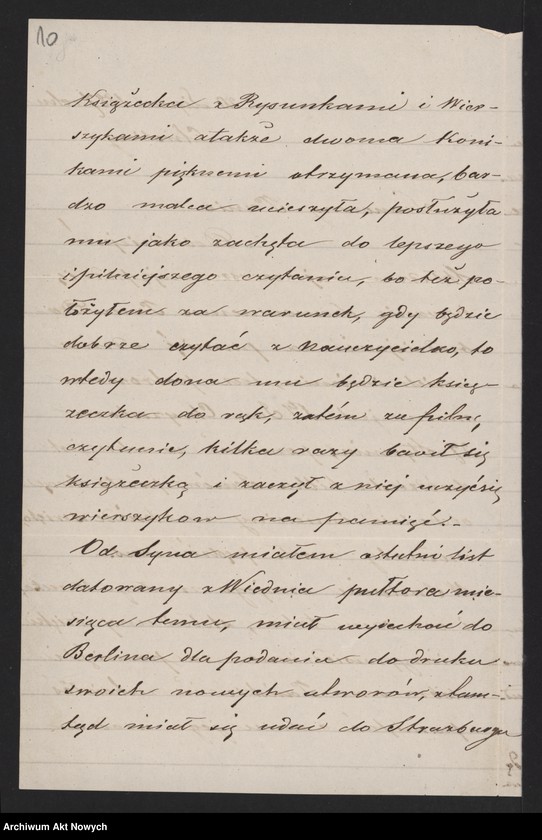 10
Książeczka z Rysunkami i Wier-
szykami a także dwoma Koni-
kami pięknemi otrzymana, bar-
dzo malca ucieszyła, posłużyła
mu jako zachęta do lepszego
i pilniejszego czytania, bo też po-
łożyłem za warunek, gdy będzie
dobrze czytać z Nauczycielką, to
wtedy dona mu będzie ksią-
żeczka do rąk, zatém za pilne
czytanie, kilka razy bawił się
książeczką i zaczął z niej uczyć się
wierszyków na pamięć.-
Od Syna miałem ostatni list
datowany z Wiednia półtora mie-
siąca temu, miał wyjechać do
Berlina dla podania do druku
swoich nowych utworów, ztam-
tąd miał się udać do Strazburga
Archiwum Akt Nowych